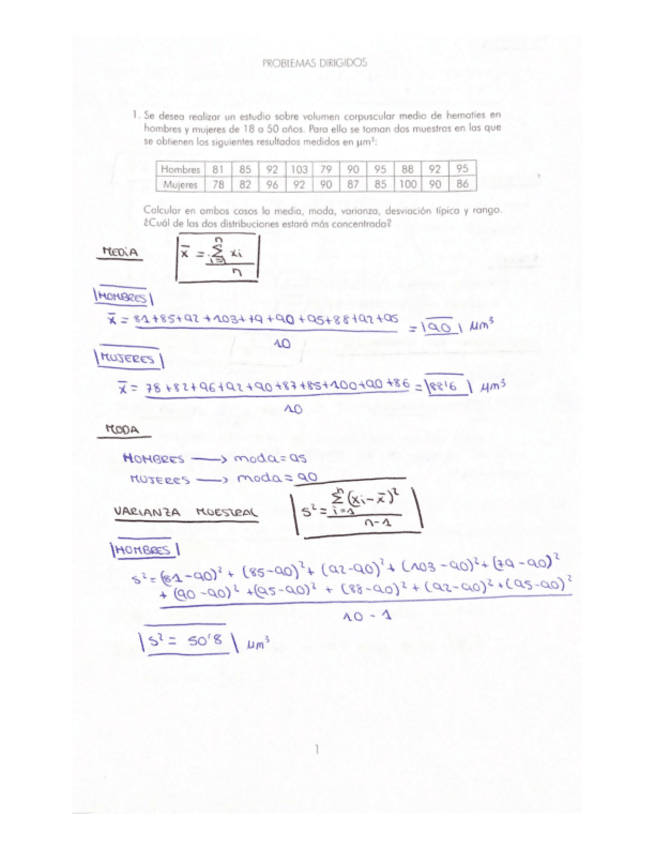 PROBLEMAS DIRIGIDOS
1. Se desea realizar un estudio sobre volumen corpuscular medio de hematíes en
hombres y mujeres de 18 a 50 años. Para ello se toman dos muestras en las que
se obtienen los siguientes resultados medidos en µm³:
Hombres 81 85 92 103 79 90 95 88 92 95
Mujeres 78 82 96 92 90 87 85 100 90 86
Calcular en ambos casos la media, moda, varianza, desviación típica y rango.
¿Cuál de las dos distribuciones estará más concentrada?
MEDIA x̄ = Σ xi / n (i=1, n)
HOMBRES
x̄ = 81+85+92+103+79+90+95+88+92+95 / 10 = 90 µm³
MUJERES
x̄ = 78+82+96+92+90+87+85+100+90+86 / 10 = 88'6 µm³
MODA
HOMBRES → moda=95
MUJERES → moda=90
VARIANZA MUESTRAL s² = Σ (xi-x̄)² / n-1 (i=1, n)
HOMBRES
s² = (81-90)² + (85-90)² + (92-90)² + (103-90)² + (79-90)²
+ (90-90)² + (95-90)² + (88-90)² + (92-90)² + (95-90)²
10 - 1
s² = 50'8 µm³
1